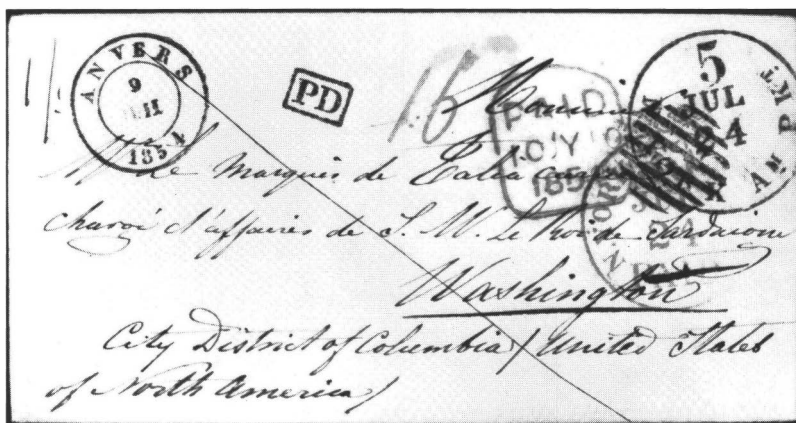 ANVERS
9
1854
PD
16
PAID
10JY10
185
5
JUL
24
AM PKT
Monsieur
Mr le Marquis de
chargé d'affaires de S. M. Le Roi de Sardaigne
Washington
City District of Columbia / United States
of North America /